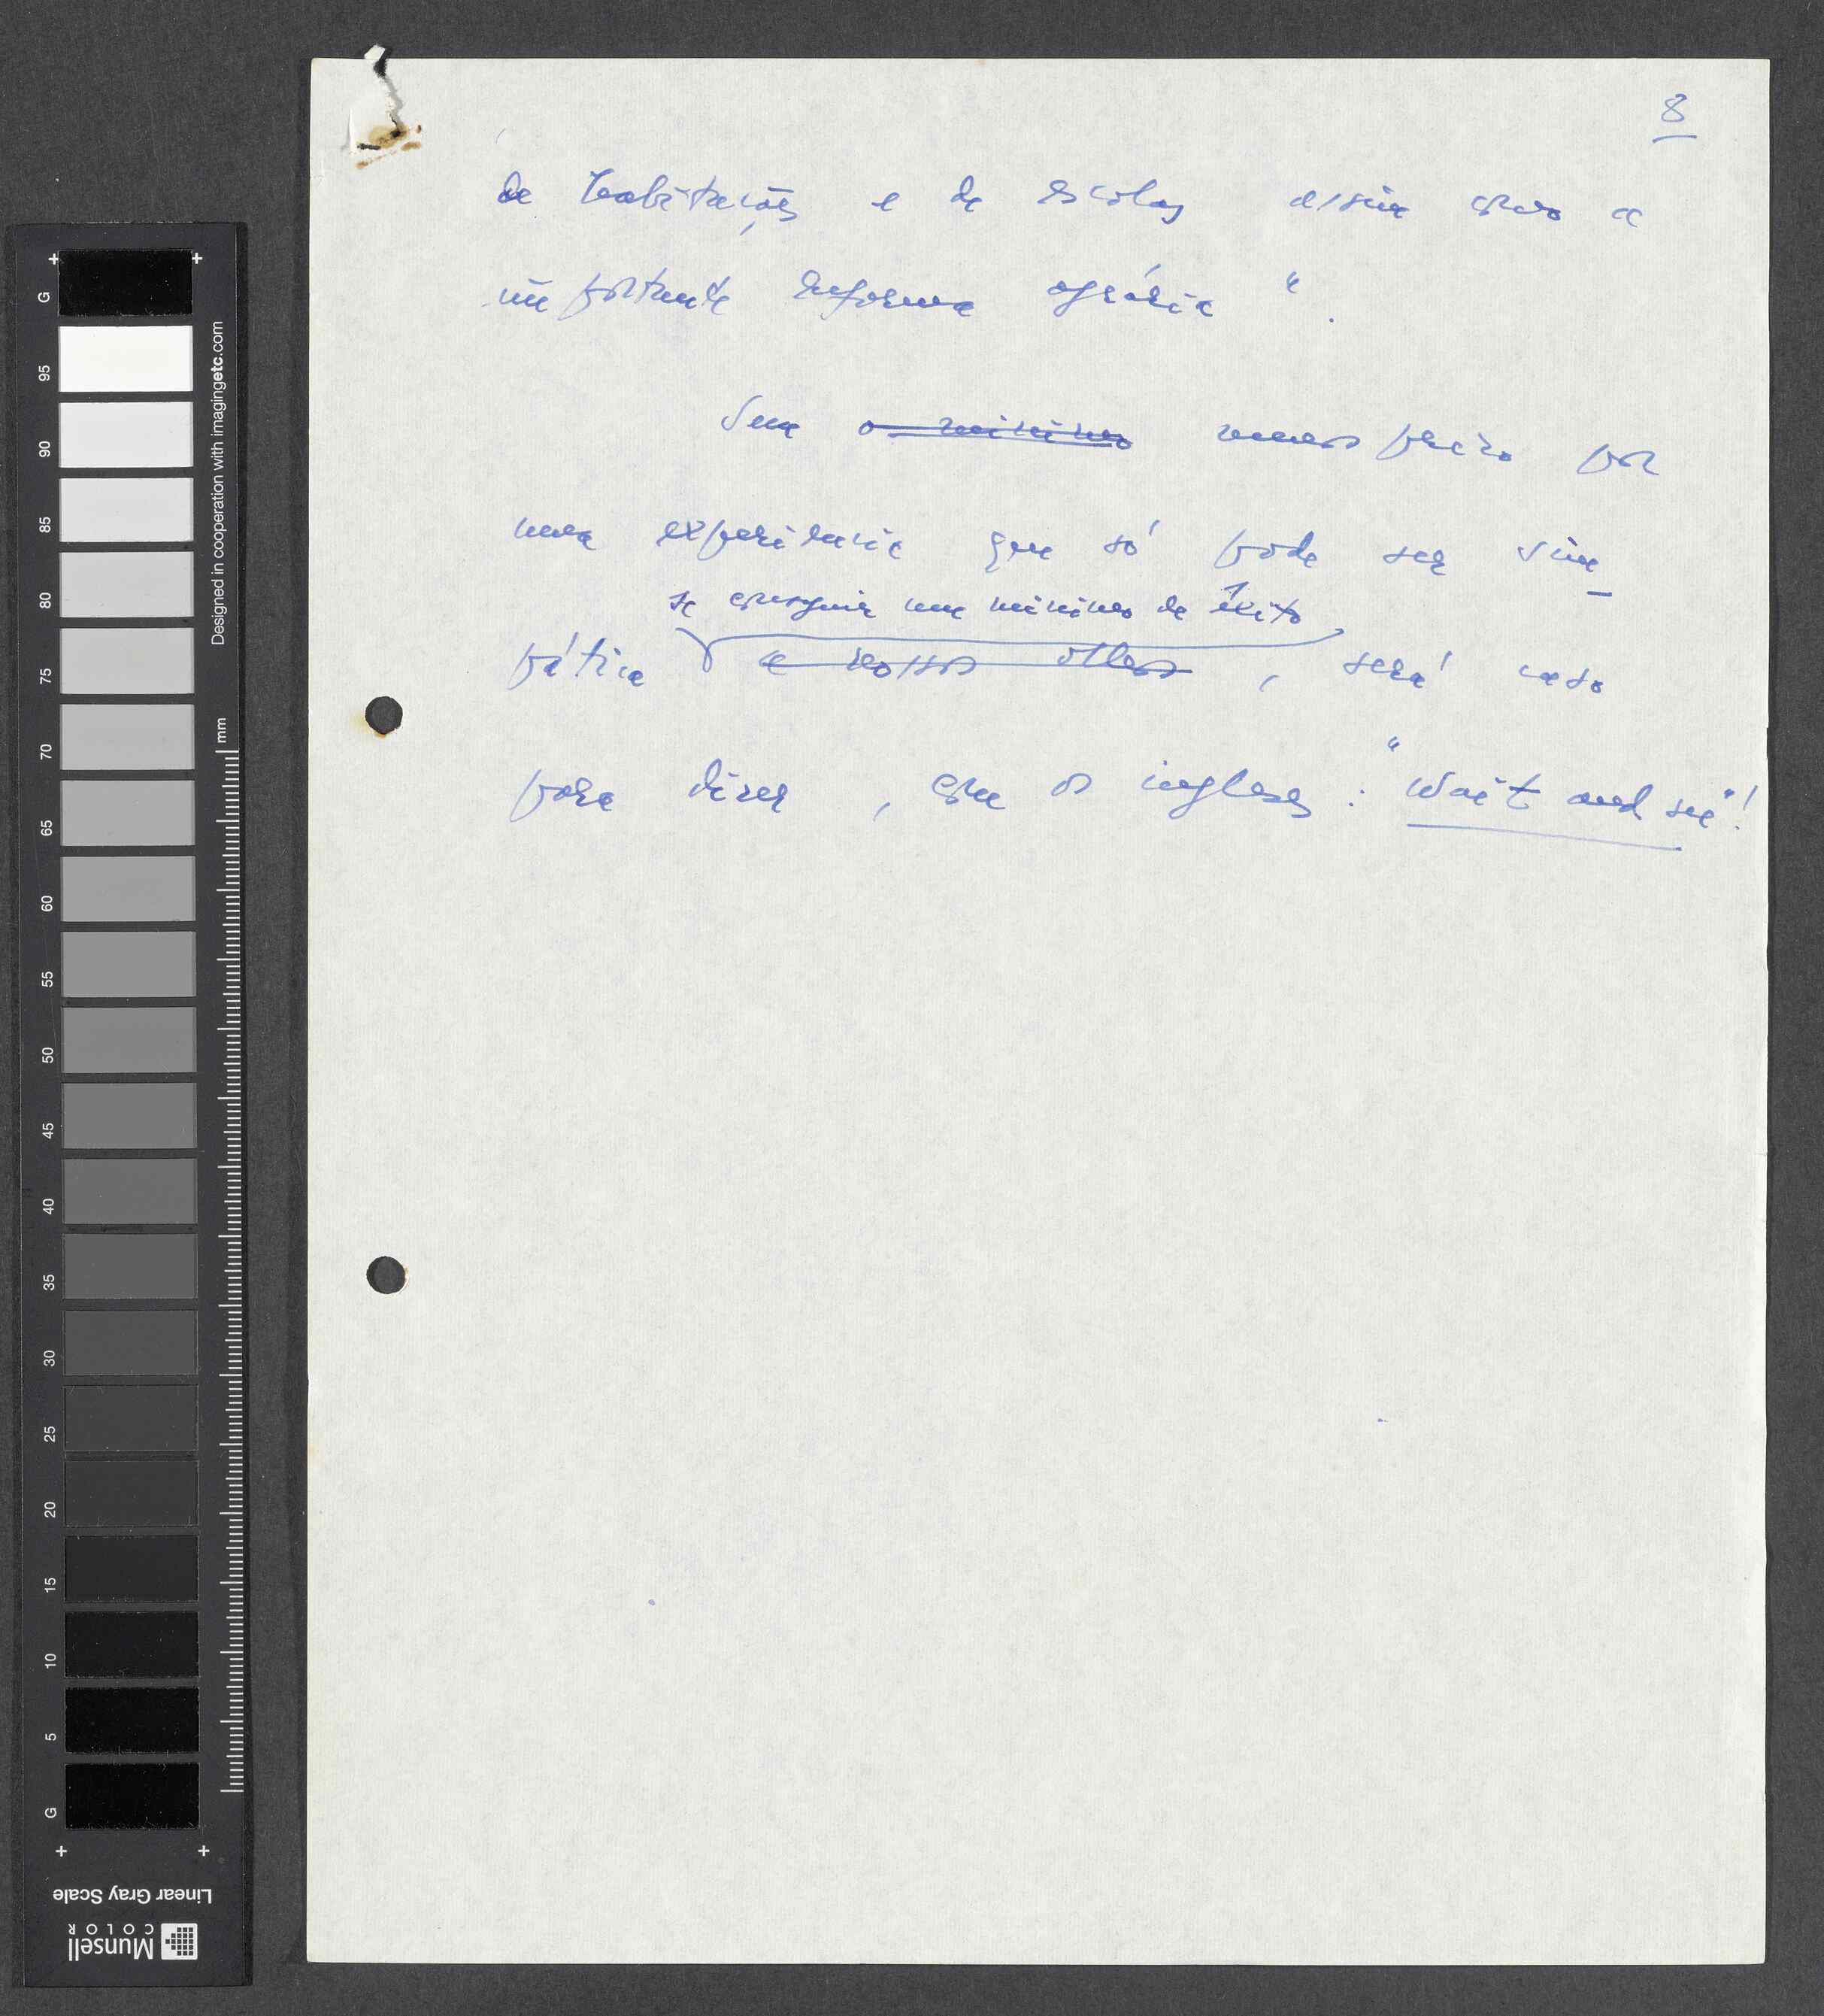 8
de habitações e de escolas assim como a
importante reforma agrária".
Sem o mínimo menosprezo por
uma experiência que só pode ser sim-
se conseguir um mínimo de êxito
pática a nossos olhos, será caso
para dizer, com os ingleses: "Wait and see"!
G
95
90
85
80
75
70
65
60
55
50
45
40
35
30
25
20
15
10
5
G
Designed in cooperation with imagingetc.com
mm
Linear Gray Scale
Munsell
COLOR